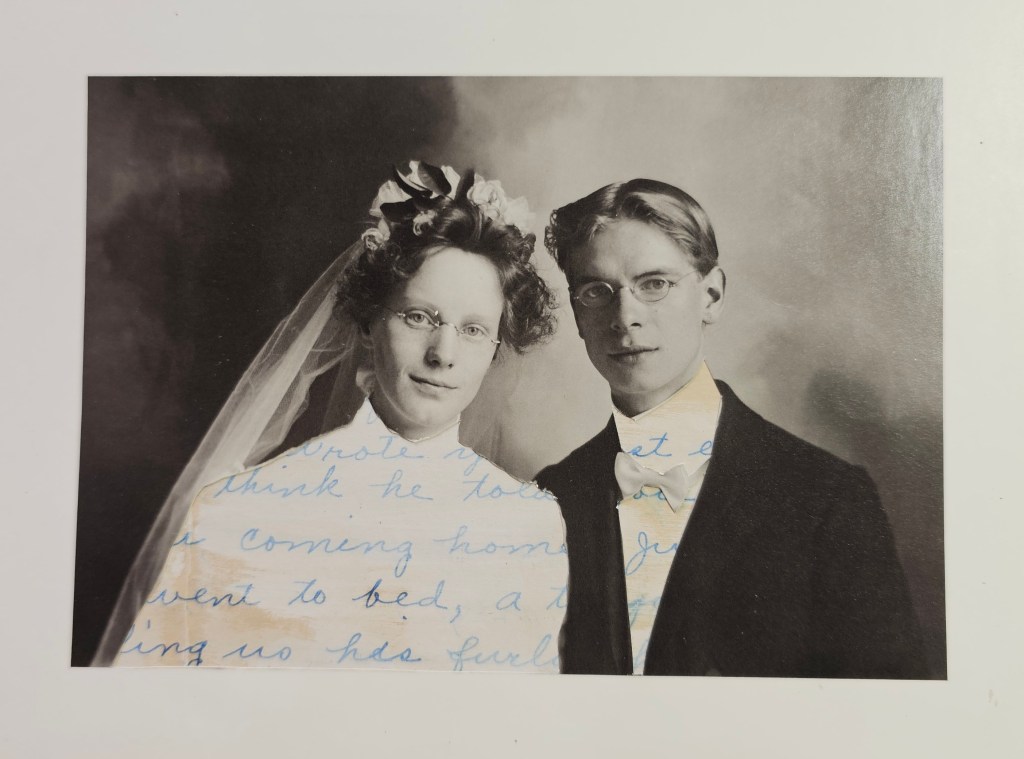 wrote y st e
think he told
coming home Ju
went to bed, a t
ling us his furlo